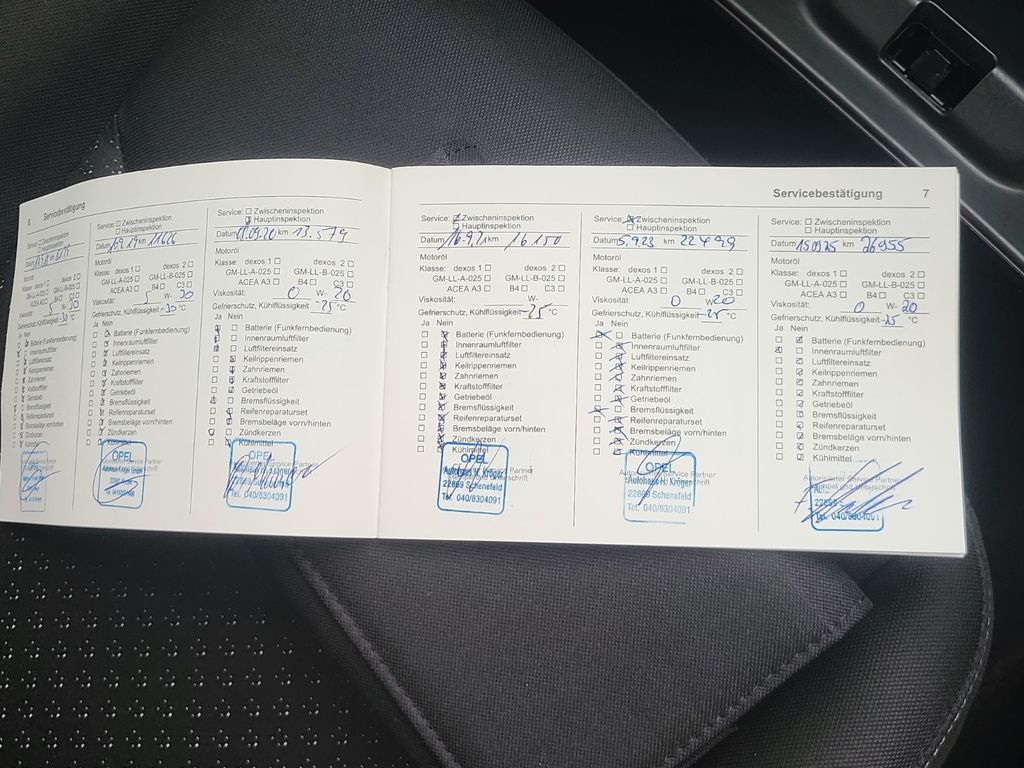 6 Servicebestätigung
Service: Zwischeninspektion
Hauptinspektion
Datum
Motoröl
Klasse: dexos 1 dexos 2
GM-LL-A-025 GM-LL-B-025
ACEA A3 B4 C3
Viskosität: 5 W- 30
Gefrierschutz, Kühlflüssigkeit -30 °C
Ja Nein
Batterie (Funkfernbedienung)
Innenraumluftfilter
Luftfiltereinsatz
Keilrippenriemen
Zahnriemen
Kraftstofffilter
Getriebeöl
Bremsflüssigkeit
Reifenreparaturset
Bremsbeläge vorn/hinten
Zündkerzen
Kühlmittel
Service: Zwischeninspektion
Hauptinspektion
Datum km 11626
Motoröl
Klasse: dexos 1 dexos 2
GM-LL-A-025 GM-LL-B-025
ACEA A3 B4 C3
Viskosität: 5 W- 30
Gefrierschutz, Kühlflüssigkeit -30 °C
Ja Nein
Batterie (Funkfernbedienung)
Innenraumluftfilter
Luftfiltereinsatz
Keilrippenriemen
Zahnriemen
Kraftstofffilter
Getriebeöl
Bremsflüssigkeit
Reifenreparaturset
Bremsbeläge vorn/hinten
Zündkerzen
Kühlmittel
OPEL
Service: Zwischeninspektion
Hauptinspektion
Datum 09.20 km 13.579
Motoröl
Klasse: dexos 1 dexos 2
GM-LL-A-025 GM-LL-B-025
ACEA A3 B4 C3
Viskosität: 0 W- 20
Gefrierschutz, Kühlflüssigkeit -25 °C
Ja Nein
Batterie (Funkfernbedienung)
Innenraumluftfilter
Luftfiltereinsatz
Keilrippenriemen
Zahnriemen
Kraftstofffilter
Getriebeöl
Bremsflüssigkeit
Reifenreparaturset
Bremsbeläge vorn/hinten
Zündkerzen
Kühlmittel
OPEL
Tel. 040/8304091
Servicebestätigung 7
Service: Zwischeninspektion
Hauptinspektion
Datum 16.9.21 km 16150
Motoröl
Klasse: dexos 1 dexos 2
GM-LL-A-025 GM-LL-B-025
ACEA A3 B4 C3
Viskosität: W-
Gefrierschutz, Kühlflüssigkeit -25 °C
Ja Nein
Batterie (Funkfernbedienung)
Innenraumluftfilter
Luftfiltereinsatz
Keilrippenriemen
Zahnriemen
Kraftstofffilter
Getriebeöl
Bremsflüssigkeit
Reifenreparaturset
Bremsbeläge vorn/hinten
Zündkerzen
Kühlmittel
OPEL
Autohaus H. Krüger
22869 Schenefeld
Tel. 040/8304091
Service: Zwischeninspektion
Hauptinspektion
Datum 5.9.23 km 22498
Motoröl
Klasse: dexos 1 dexos 2
GM-LL-A-025 GM-LL-B-025
ACEA A3 B4 C3
Viskosität: 0 W 20
Gefrierschutz, Kühlflüssigkeit -25 °C
Ja Nein
Batterie (Funkfernbedienung)
Innenraumluftfilter
Luftfiltereinsatz
Keilrippenriemen
Zahnriemen
Kraftstofffilter
Getriebeöl
Bremsflüssigkeit
Reifenreparaturset
Bremsbeläge vorn/hinten
Zündkerzen
Kühlmittel
OPEL
Autohaus H. Krüger
22869 Schenefeld
Tel. 040/8304091
Service: Zwischeninspektion
Hauptinspektion
Datum 15.09.25 km 26955
Motoröl
Klasse: dexos 1 dexos 2
GM-LL-A-025 GM-LL-B-025
ACEA A3 B4 C3
Viskosität: 0 W- 20
Gefrierschutz, Kühlflüssigkeit -25 °C
Ja Nein
Batterie (Funkfernbedienung)
Innenraumluftfilter
Luftfiltereinsatz
Keilrippenriemen
Zahnriemen
Kraftstofffilter
Getriebeöl
Bremsflüssigkeit
Reifenreparaturset
Bremsbeläge vorn/hinten
Zündkerzen
Kühlmittel
Autorisierter Service Partner
22869
Tel. 040/8304091